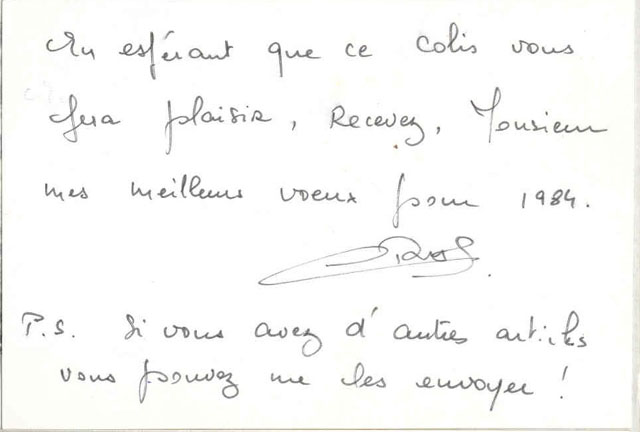 En espérant que ce colis vous
fera plaisir, Recevez, Monsieur
mes meilleurs voeux pour 1984.
P.S. Si vous avez d'autres articles
vous pouvez me les envoyer !